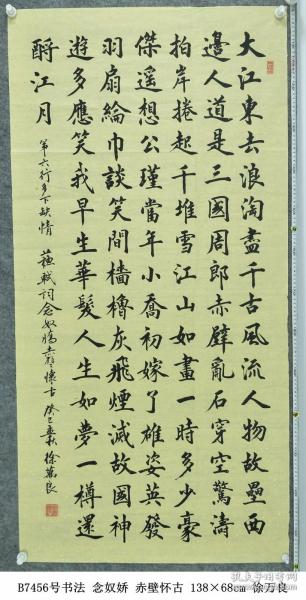 大江東去浪淘盡千古風流人物故壘西
邊人道是三國周郎赤壁亂石穿空驚濤
拍岸捲起千堆雪江山如畫一時多少豪
傑遙想公瑾當年小喬初嫁了雄姿英發
羽扇綸巾談笑間檣櫓灰飛煙滅故國神
遊多應笑我早生華髮人生如夢一樽還
酹江月
第六行多下缺情 蘇軾詞念奴嬌赤壁懷古 癸巳秋 徐萬良
B7456号书法 念奴娇 赤壁怀古 138×68cm 徐万良